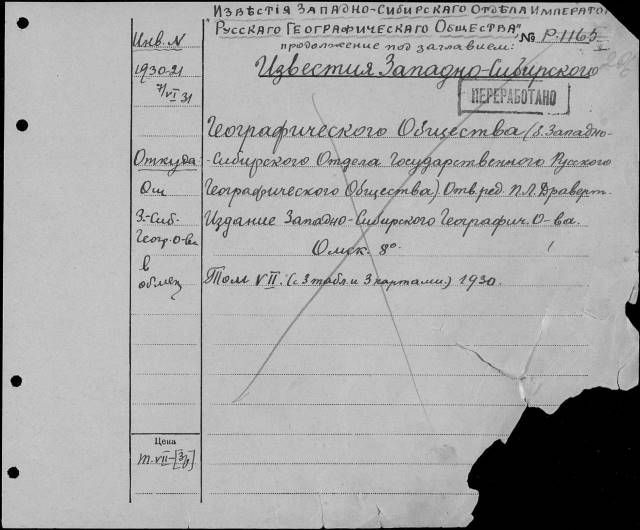 Извѣстія Западно-Сибирскаго Отдѣла Император
"Русскаго Географическаго Общества"
№ Р-1165
продолжение под заглавием:
Инв. N
1930-21
7/VI 31
Известия Западно-Сибирского
ПЕРЕРАБОТАНО
Географического Общества (б. Западно-
Откуда
-Сибирского Отдела Государственного Русского
От
Географического Общества). Отв. ред. П.Л. Драверт.
З.-Сиб.
Издание Западно-Сибирского Географич. О-ва.
Геогр. О-ва
Омск. 8°.
в
обмен
Том VII. (с 3 табл. и 3 картами.) 1930.
Цена
т. VII-